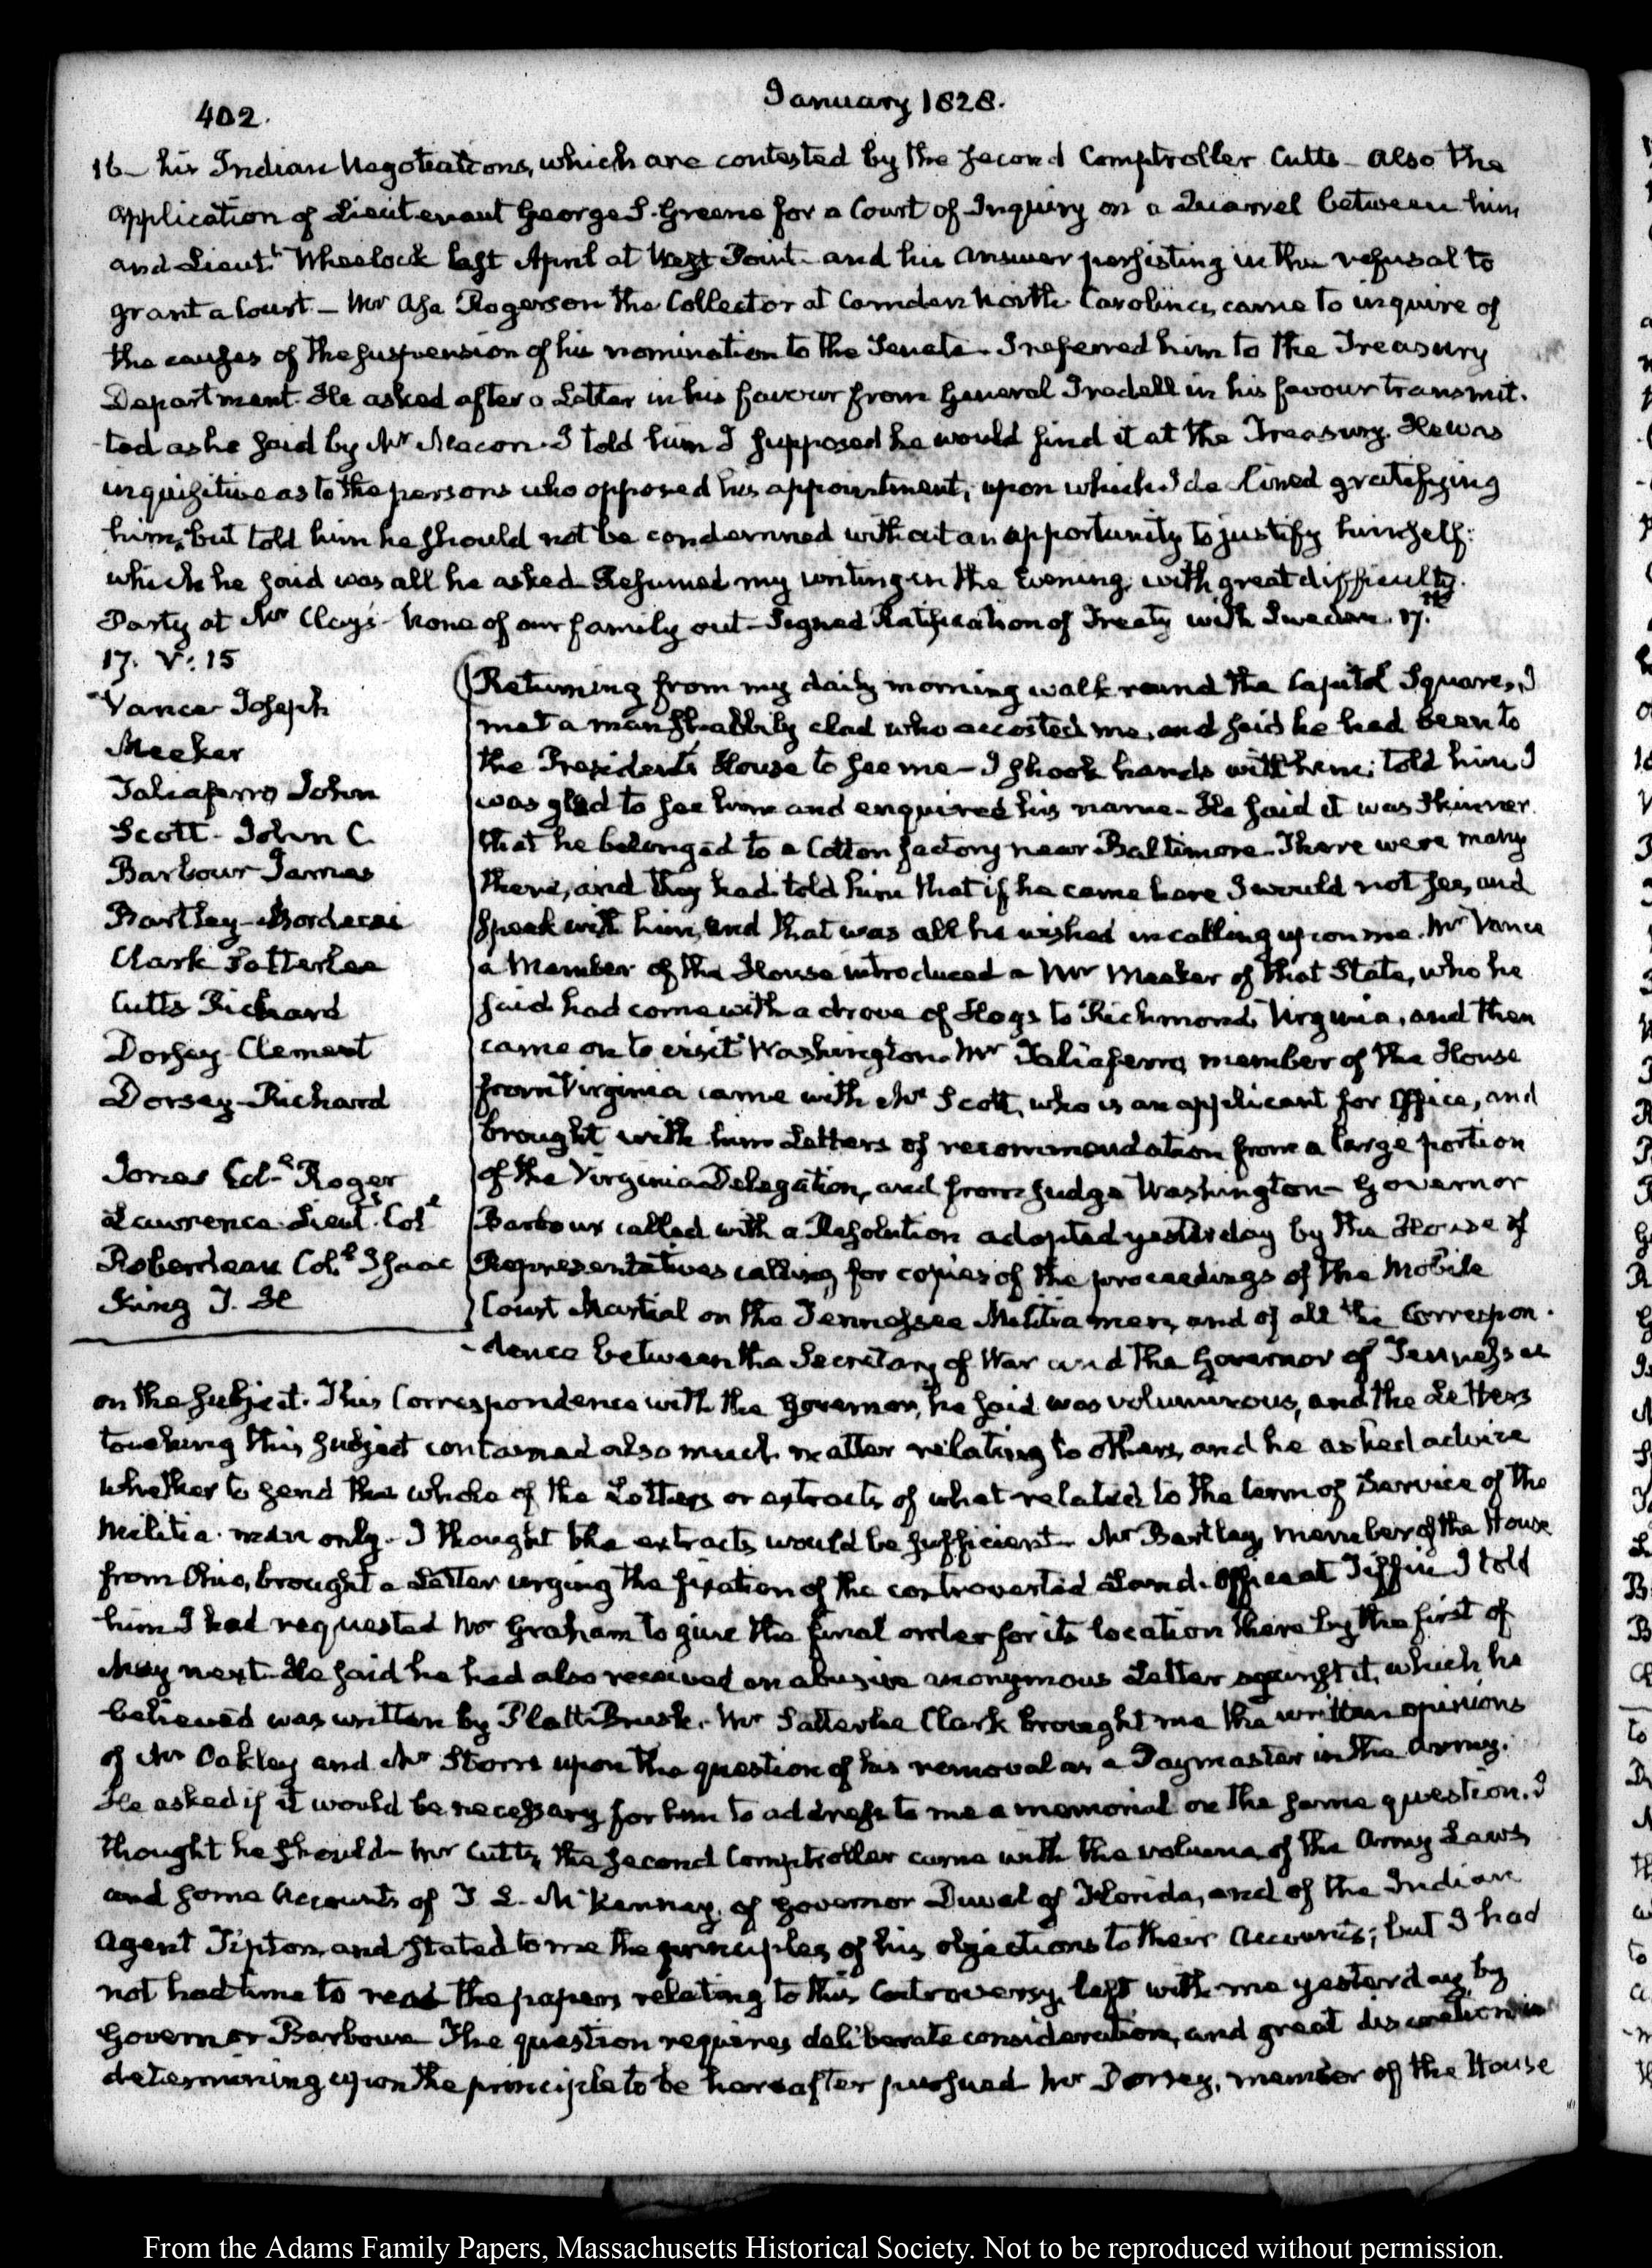 402.
January 1828.
16— his Indian Negotiations, which are contested by the second Comptroller Cutts— also the
application of Lieutenant George S. Greene for a Court of Inquiry on a Quarrel between him
and Lieutt Wheelock last April at West Point— and his answer persisting in the refusal to
grant a Court— Mr Asa Rogerson the Collector at Camden North Carolina, came to inquire of
the causes of the suspension of his nomination to the Senate. I referred him to the Treasury
Department. He asked after a Letter in his favour from General Iredell in his favour transmit-
-ted as he said by Mr Macon— I told him I supposed he would find it at the Treasury. He was
inquisitive as to the persons who opposed his appointment, upon which I declined gratifying
him, but told him he should not be condemned without an opportunity to justify himself:
which he said was all he asked— Resumed my writing in the Evening, with great difficulty.
Party at Mr Clay's— None of our family out— Signed Ratification of Treaty with Sweden. 17.th
17. V: 15
Vance Joseph
Meeker
Taliaferro John
Scott— John C.
Barbour James
Bartley— Mordecai
Clark Satterlee
Cutts Richard
Dorsey— Clement
Dorsey— Richard
Jones Coll Roger
Lawrence Lieutt Coll
Roberdeau Coll Isaac
King
Returning from my daily morning walk round the Capitol Square, I
met a man shabbily clad who accosted me, and said he had been to
the President's House to see me— I shook hands with him; told him I
was glad to see him and enquired his name— He said it was Skinner.
that he belonged to a Cotton factory near Baltimore— There were many
there, and they had told him that if he came here I would not see, and
speak with him, and that was all he wished in calling upon me. Mr Vance
a Member of the House introduced a Mr Meeker of that State, who he
said had come with a drove of Hogs to Richmond, Virginia, and then
came on to visit Washington. Mr Taliaferro, member of the House
from Virginia came with Mr Scott, who is an applicant for Office, and
brought with him Letters of recommendation from a large portion
of the Virginia Delegation, and from Judge Washington— Governor
Barbour called with a Resolution adopted yesterday by the House of
Representatives calling for copies of the proceedings of the Mobile
Court Martial on the Tennessee Militia men, and of all the Correspon-
-dence between the Secretary of War and the Governor of Tennessee
on the subject. This Correspondence with the Governor, he said was voluminous, and the Letters
touching this subject contained also much matter relating to others, and he asked advice
whether to send the whole of the Letters or extracts of what related to the term of Service of the
Militia men only— I thought the extracts would be sufficient— Mr Bartley, member of the House
from Ohio, brought a Letter urging the fixation of the controverted Land Office at Tiffin— I told
him I had requested Mr Graham to give the final order for its location there by the first of
May next— He said he had also received an abusive anonymous Letter against it, which he
believed was written by Platt Brush. Mr Satterlee Clark brought me the written opinions
of Mr Oakley and Mr Storrs upon the question of his removal as a Paymaster in the Army.
He asked if it would be necessary for him to address to me a memorial on the same question. I
thought he should— Mr Cutts, the second Comptroller came with the volume of the Army Laws,
and some Accounts of T. L. McKenney, of Governor Duval of Florida, and of the Indian
Agent Tipton, and stated to me the principles of his objections to their Accounts; but I had
not had time to read the papers relating to this Controversy, left with me yesterday by
Governor Barbour— The question requires deliberate consideration, and great discretion in
determining upon the principle to be hereafter pursued. Mr Dorsey, member of the House
From the Adams Family Papers, Massachusetts Historical Society. Not to be reproduced without permission.